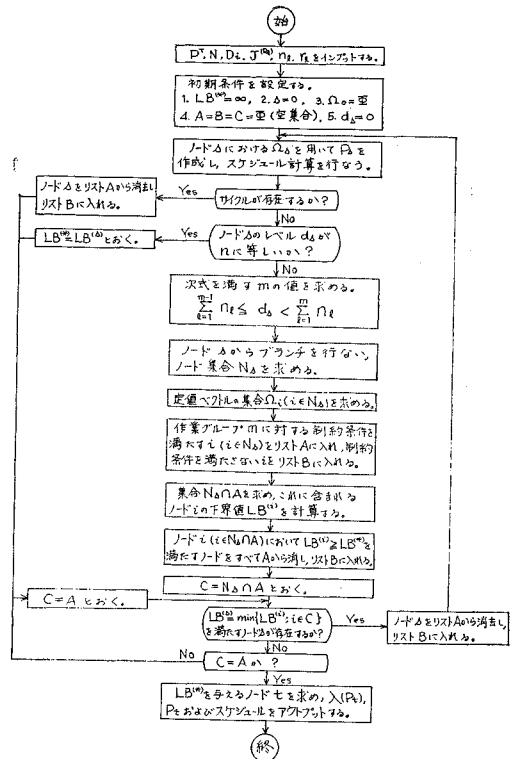 始
P^T, N, Di, J^(Pq), nℓ, rℓ をインプットする。
初期条件を設定する。
1. LB^(*)=∞, 2. Δ=0, 3. Ω₀=亜
4. A=B=C=亜(空集合), 5. d_Δ=0
ノードΔにおけるΩ_Δを用いてP_Δを
作成し,スケジュール計算を行なう。
サイクルが存在するか?
Yes
ノードΔをリストAから消去し
リストBに入れる。
No
ノードΔのレベルd_Δが
nに等しいか?
Yes
LB^(*)=LB^(Δ)とおく。
No
次式を満すmの値を求める。
m-1 Σ ℓ=1 nℓ ≦ d_Δ < m Σ ℓ=1 nℓ
ノードΔからブランチを行ない,
ノード集合N_Δを求める。
定値ベクトルの集合Ωi(i∈N_Δ)を求める。
作業グループmに対する制約条件を
満たすi(i∈N_Δ)をリストAに入れ,制約
条件を満たさないiをリストBに入れる。
集合N_Δ∩Aを求め,これに含まれる
ノードiの下界値LB^(i)を計算する。
ノードi(i∈N_Δ∩A)においてLB^(i)≧LB^(*)を
満たすノードをすべてAから消し,リストBに入れる。
C=N_Δ∩Aとおく。
C=Aとおく。
LB^(Δ)=min{LB^(i);i∈C}
を満たすノードΔが存在するか?
Yes
ノードΔをリストAから消去し,
リストBに入れる。
No
C=Aか?
No
Yes
LB^(*)を与えるノードtを求め,λ(Pt),
Ptおよびスケジュールをアウトプットする。
終